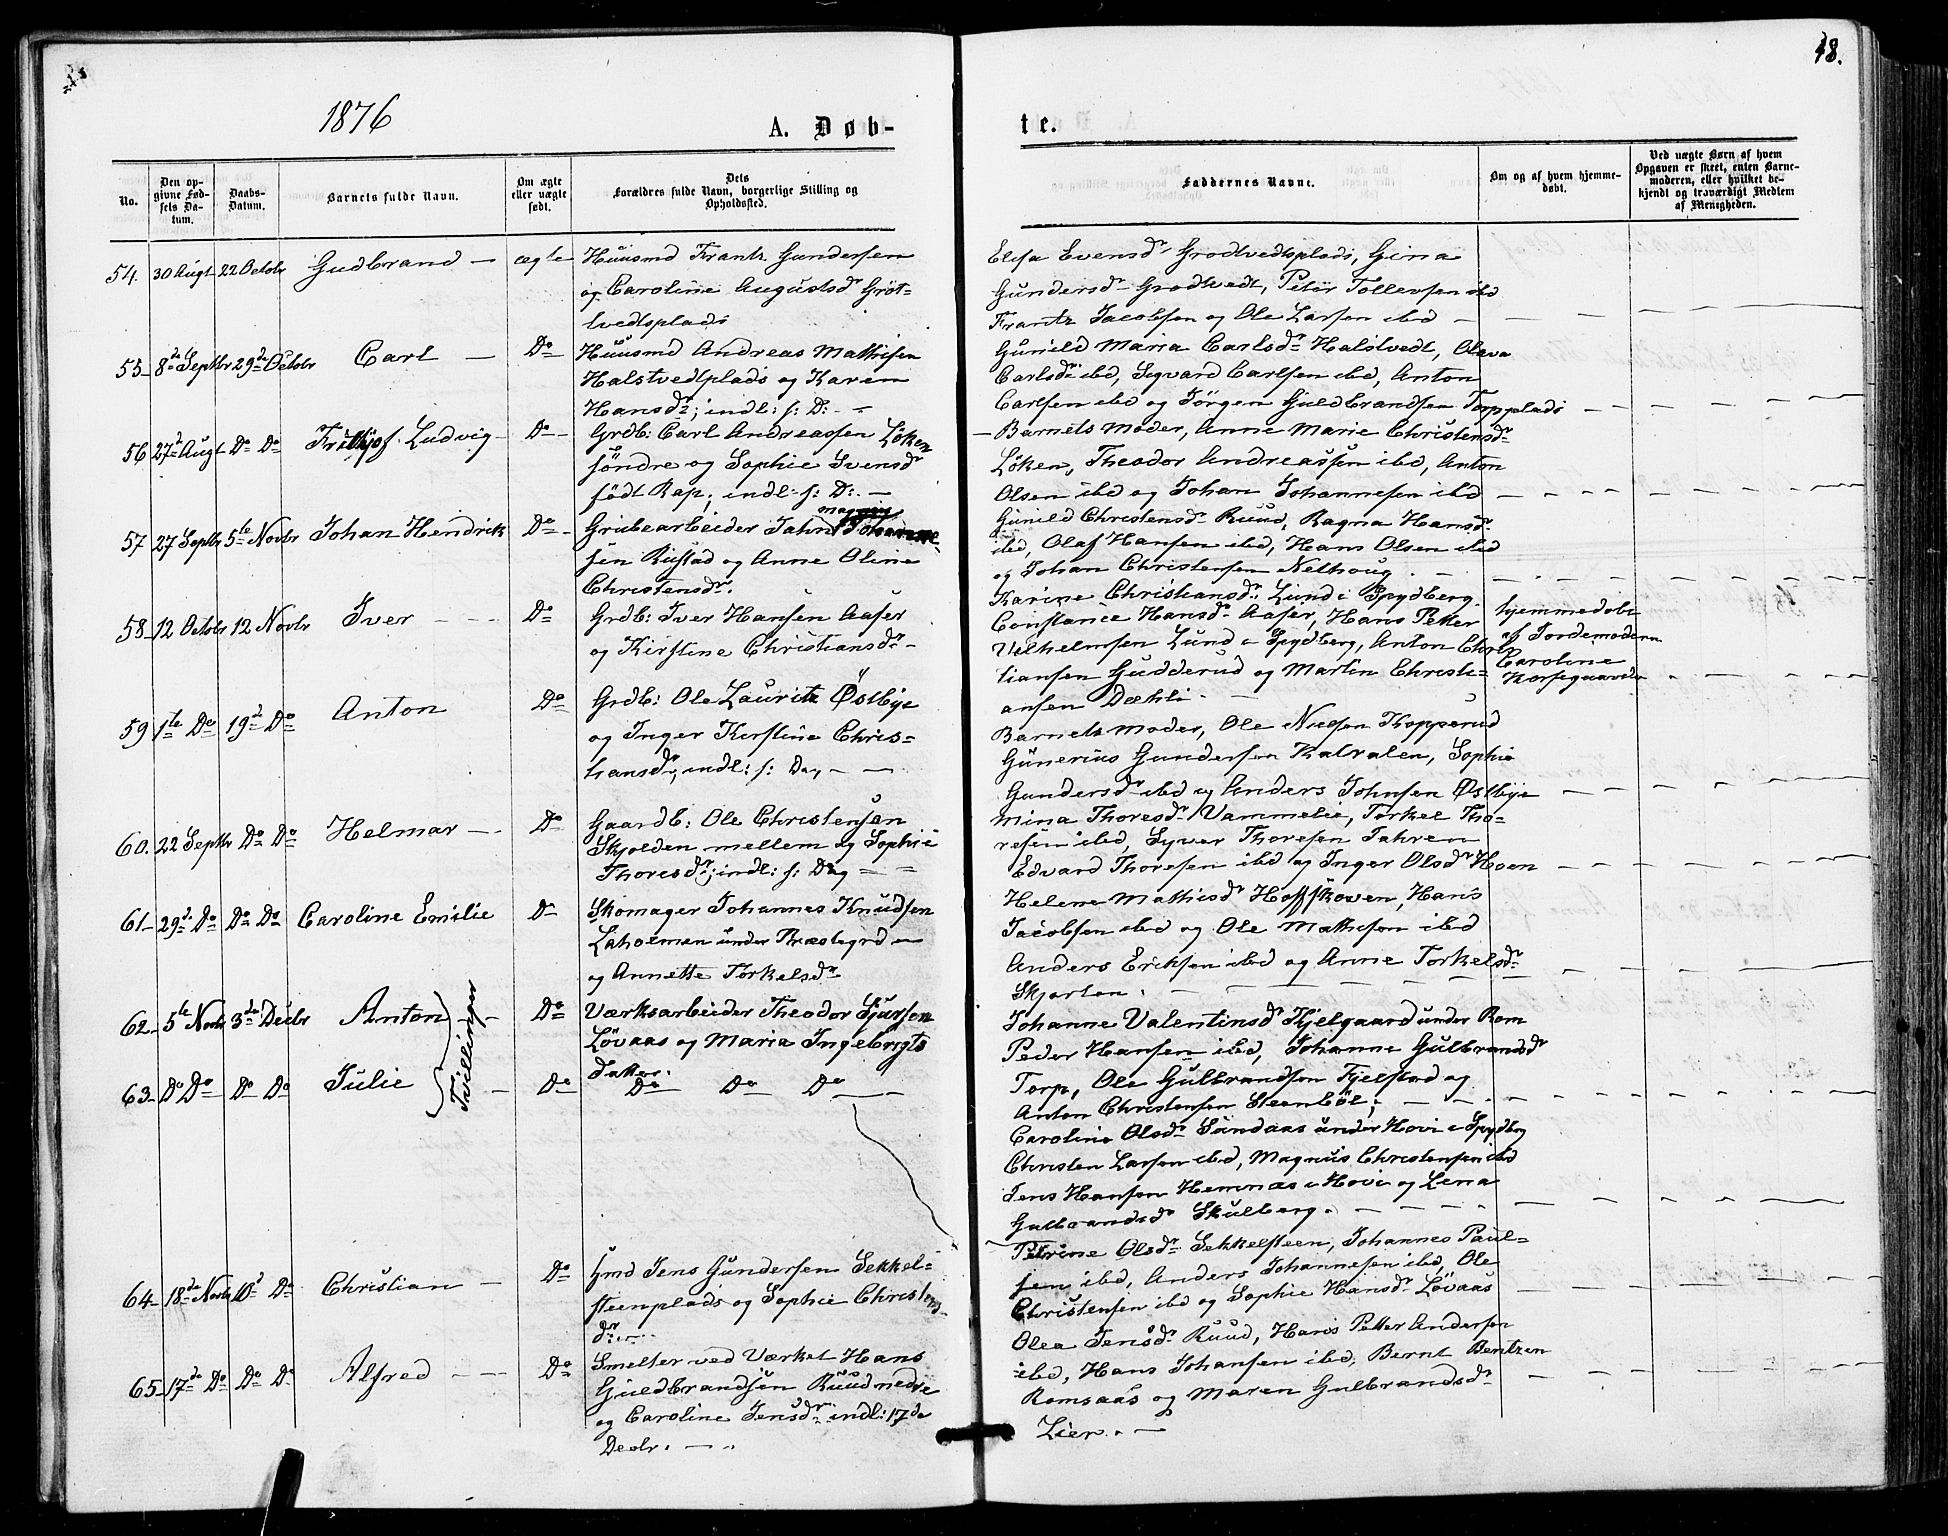 48.
1876
A. Døb-
te.
No.
Den op-
givne Fød-
sels Da-
tum.
Daabs-
Datum.
Barnets fulde Navn.
Om ægte
eller uægte
født.
Dets
Forældres fulde Navn, borgerlige Stilling og
Opholdssted.
Faddernes Navne.
Om og af hvem hjemme-
døbt.
Ved uægte Børn af hvem
Opgaven er skeet, enten Barne-
moderen, eller hvilket be-
kjendt og troværdigt Medlem
af Menigheden.
54. 30 Augt 22 Octobr Gudbrand – ægte Huusmd Frantz Gundersen
og Caroline Augustsdr Grøt-
tvedtsplads
Elisa Evensdr Grodtvedtsplads, Gina
Gundersdr Grodtvedt, Petér Tollevsen ibd
Frantz Jacobsen og Ole Larsen ibd –
55– 8de Septbr 29de Octobr Carl – Do Huusmd Andreas Mathisen
Halstvedtplads og Karen
Hansdr; indl: s: D: –
Gunild Maria Carlsdr Halstvedt, Oleva
Carlsdr ibd, Sigvard Carlsen ibd, Anton
Carlsen ibd og Jørgen Guldbrandsen Torpplads – –
56 27d Augt Do Do Frithjof Ludvig – Do – Grdb: Carl Andreassen Løken
søndre og Sophie Svensdr
født Rap; indl: s: D: –
– Barnets Moder, Anne Marie Christensdr
Løken, Theodor Andreassen ibd, Anton
Olsen ibd og Johan Johannesen ibd
57 27 Septbr 5te Novbr Johan Hendrik Do – Grubearbeider Jahn Magnus Johanne-
sen Rustad og Anne Oline
Christensdr.
Gunild Christensdr Ruud, Ragna Hansdr
ibd, Olaf Hansen ibd, Hans Olsen ibd
og Johan Christensen Nethoug. –
58– 12 Octobr 12 Novbr Iver – – – Do Grdb: Iver Hansen Aaser
og Kirstine Christiansdr –
Karine Christiansdr Lund i Spydberg
Constance Hansdr Aaser, Hans Petter
Vilhelmsen Lund i Spydberg, Anton Chris
tiansen Gudderud og Martin Christi-
ansen Dæhli. –
hjemmedøbt
af Jordemodern
Caroline
59 1te Do 19d Do Anton Do Grdb: Ole Lauritz Østbye
og Inger Kirstine Chris-
tiansdr, indl: s: Dag – –
Barnets Moder, Ole Nielsen Kopperud
Gunerius Gundersen Kalvalen, Sophie
Gundersdr ibd og Anders Johnsen Østbye
60. 22 Septbr Do Do Helmar – – Do Gaardb: Ole Christensen
Skjolden mellem og Sophie
Thoresdr; indl: s: Dag – –
Mina Thoresdr Vammelie, Torkel Tho-
resen ibd, Syver Thoresen Jahren
Edvard Thoresen ibd og Inger Olsdr Hoen
61– 29d Do Do Do Caroline Emilie Do Skomager Johannes Knudsen
Laholmen under Præstegrd –
og Annette Torkelsdr
Helene Mathisdr Hoffskoven, Hans
Jacobsen ibd og Ole Mathisen ibd
Anders Eriksen ibd og Anne Torkelsdr
Skjorten.
62– 5te Novbr 3de Decbr Anton – Do Værksarbeider Theodor Sjursen
Løvaas og Maria Ingebrigts
datter.
Tvillinger
Johanne Valentinsdr Kjelgaard under Rom
Peder Hansen ibd, Johanne Gulbrandsdr
Torp, Ole Gulbrandsen Fjelstad og
Anton Christensen Steenbøl; –
63– Do Do Do Do Julie – Do Do Do Do – –
Caroline Olsdr Sandaas under Hovi i Spydberg
Christen Larsen ibd, Magnus Christensen ibd
Jens Hansen Hemnæs i Hovi og Lena
Gulbrandsdr Skulberg.
64– 18de Novbr 10d Do Christian – Do Hmd Jens Gundersen Sekkel-
steenplads og Sophie Christens
dr. –
Petrine Olsdr Sekkelsteen, Johannes Paul-
sen ibd, Anders Johannesen ibd, Ole
Christensen ibd og Sophie Hansdr Løvaas
65– 17de Do Do Do Alfred – – – Do Smelter ved Værket Hans
Guldbrandsen Ruud nedre
og Caroline Jensdr indl: 17de
Decbr. –
Olea Jensdr Ruud, Hans Petter Andersen
ibd, Hans Johansen ibd, Bernt Bentzen
Romsaas og Maren Gulbrandsdr
Lier. –